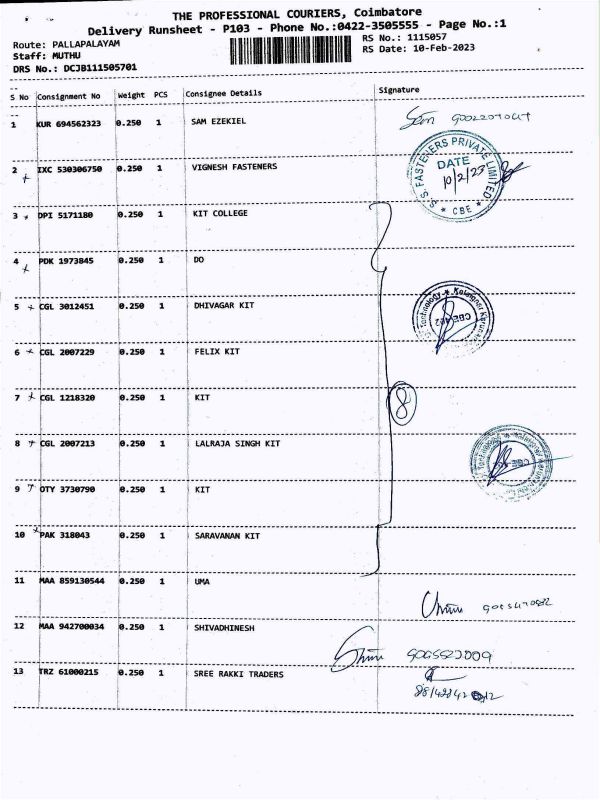 THE PROFESSIONAL COURIERS, Coimbatore
Delivery Runsheet - P103 - Phone No.:0422-3505555 - Page No.:1
Route: PALLAPALAYAM
RS No.: 1115057
Staff: MUTHU
RS Date: 10-Feb-2023
DRS No.: DCJB111505701
S No Consignment No Weight PCS Consignee Details Signature
1 KUR 694562323 0.250 1 SAM EZEKIEL Sam
2 IXC 530306750 0.250 1 VIGNESH FASTENERS
S. S. FASTENERS PRIVATE LIMITED
DATE
10/2/23
* CBE *
3 DPI 5171180 0.250 1 KIT COLLEGE
4 PDK 1973845 0.250 1 DO
5 CGL 3012451 0.250 1 DHIVAGAR KIT
Technology * Kalaignar Karunan
6 CGL 2007229 0.250 1 FELIX KIT
7 CGL 1218320 0.250 1 KIT 8
8 CGL 2007213 0.250 1 LALRAJA SINGH KIT
9 OTY 3730790 0.250 1 KIT
10 PAK 318043 0.250 1 SARAVANAN KIT
11 MAA 859130544 0.250 1 UMA
12 MAA 942700034 0.250 1 SHIVADHINESH
13 TRZ 61000215 0.250 1 SREE RAKKI TRADERS